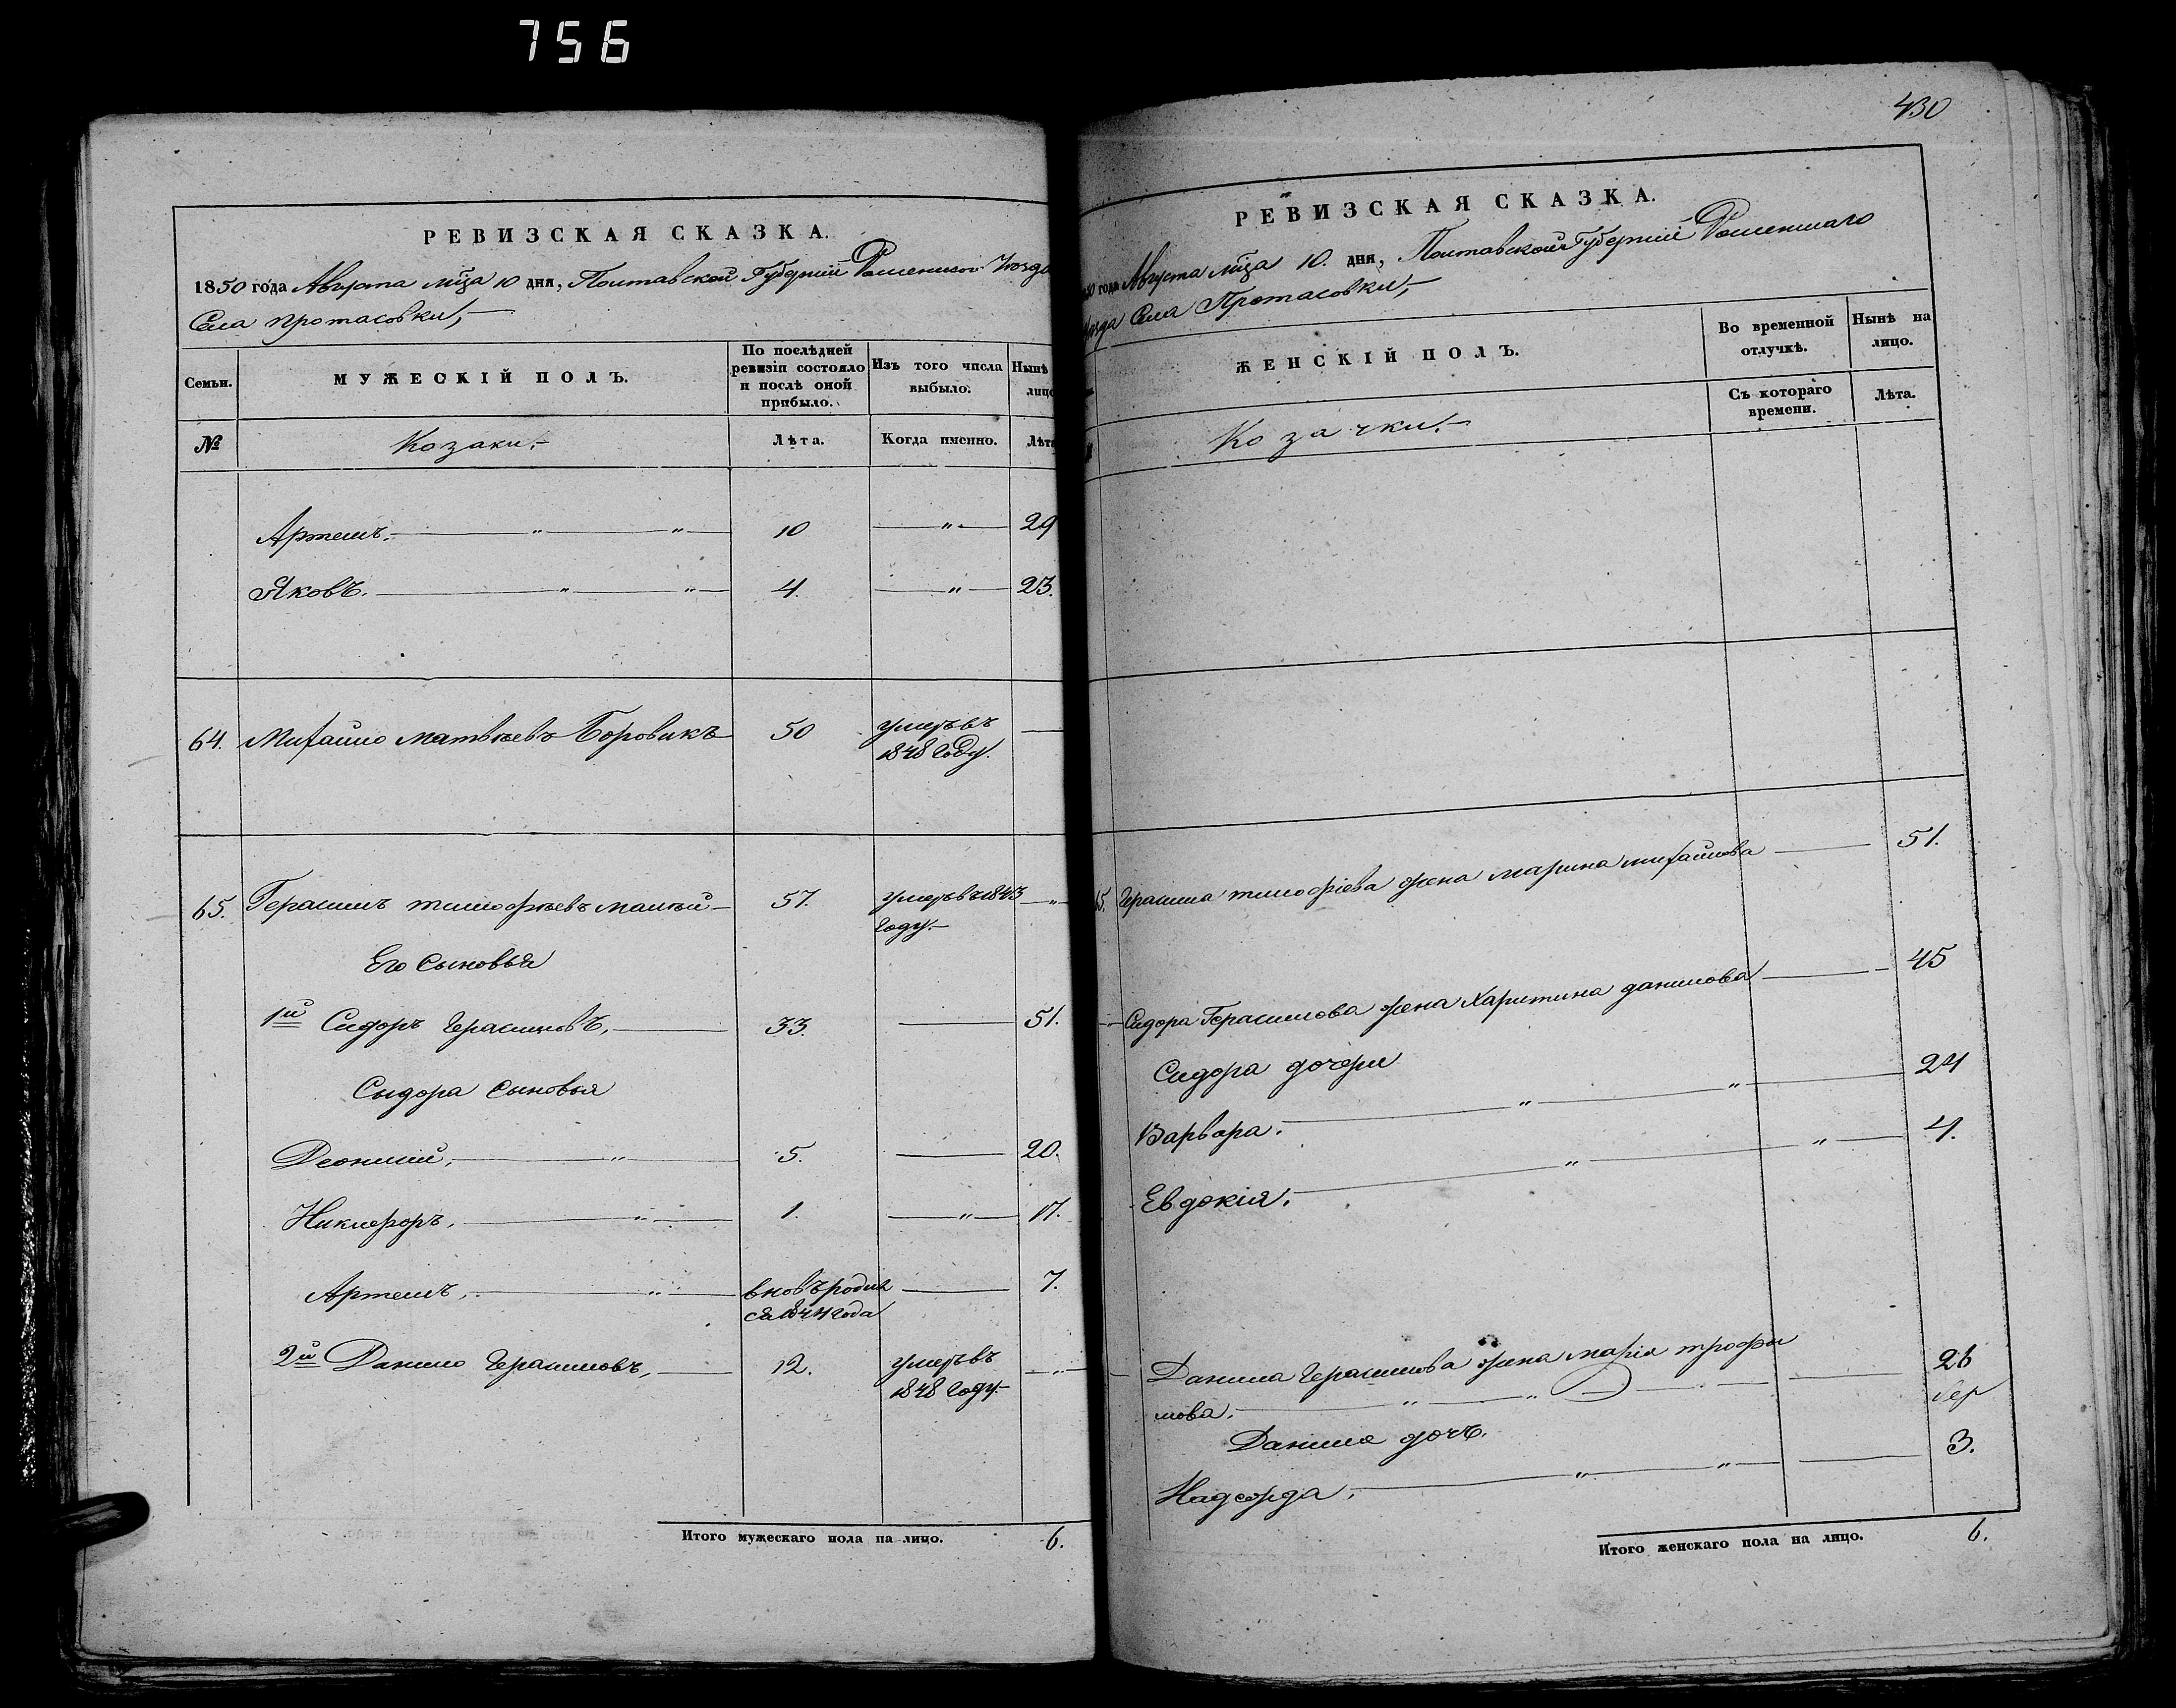 756
РЕВИЗСКАЯ СКАЗКА.
1850 года Августа мца 10 дня, Полтавской Губерніи Роменского Уезда
Села Протасовки,
Семьи.
МУЖЕСКІЙ ПОЛЪ.
По послѣдней ревизіи состояло и послѣ оной прибыло.
Изъ того числа выбыло.
Нынѣ лицо
№
Козаки.
Лѣта.
Когда именно.
Лѣта
Артемъ. 10 29
Яковъ. 4. 23.
64. Михайло матвѣевъ Боровикъ 50 умеръ въ
1848 году.
65. Герасимъ тимофѣевъ малѣй 57. умеръ въ 1843
году.
Его Сыновья
1й Сидоръ Герасимовъ, 33. 51.
Сыдора Сыновья
Леонтій, 5. 20.
Никифоръ, 1. 17.
Артемъ, вновъ родил 7.
ся 1844 года
2й Данило Герасимовъ, 12. умеръ въ
1848 году.
Итого мужескаго пола на лицо. 6.
430
РЕВИЗСКАЯ СКАЗКА.
50 года Августа мца 10. дня, Полтавской Губерніи Роменскаго
Уезда Села Протасовки,
ЖЕНСКІЙ ПОЛЪ.
Во временной отлучкѣ.
Нынѣ на лицо.
Козачки.
Съ котораго времени.
Лѣта.
65. Герасима тимофіева жена марина михайлова 51.
Сидора Герасимова жена Харитина данилова 45
Сидора дочери
Варвара. 24
Евдокія. 4.
Данила Герасимова жена марія трофи
мова. 26
Данила дочъ.
Надежда. 3.
Итого женскаго пола на лицо. 6.